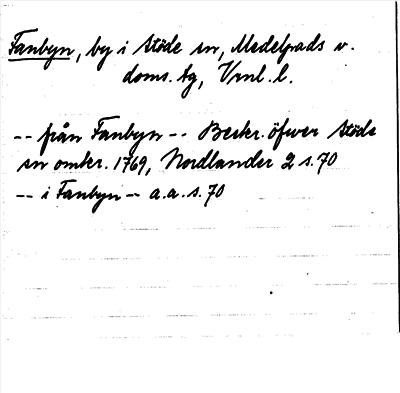 Fanbyn, by i Stöde sn, Medelpads v.
doms. tg, Vrnl. l.
-- från Fanbyn -- Beskr. öfver Stöde
sn omkr. 1769, Nordlander 2 s. 70
-- i Fanbyn -- a.a. s. 70